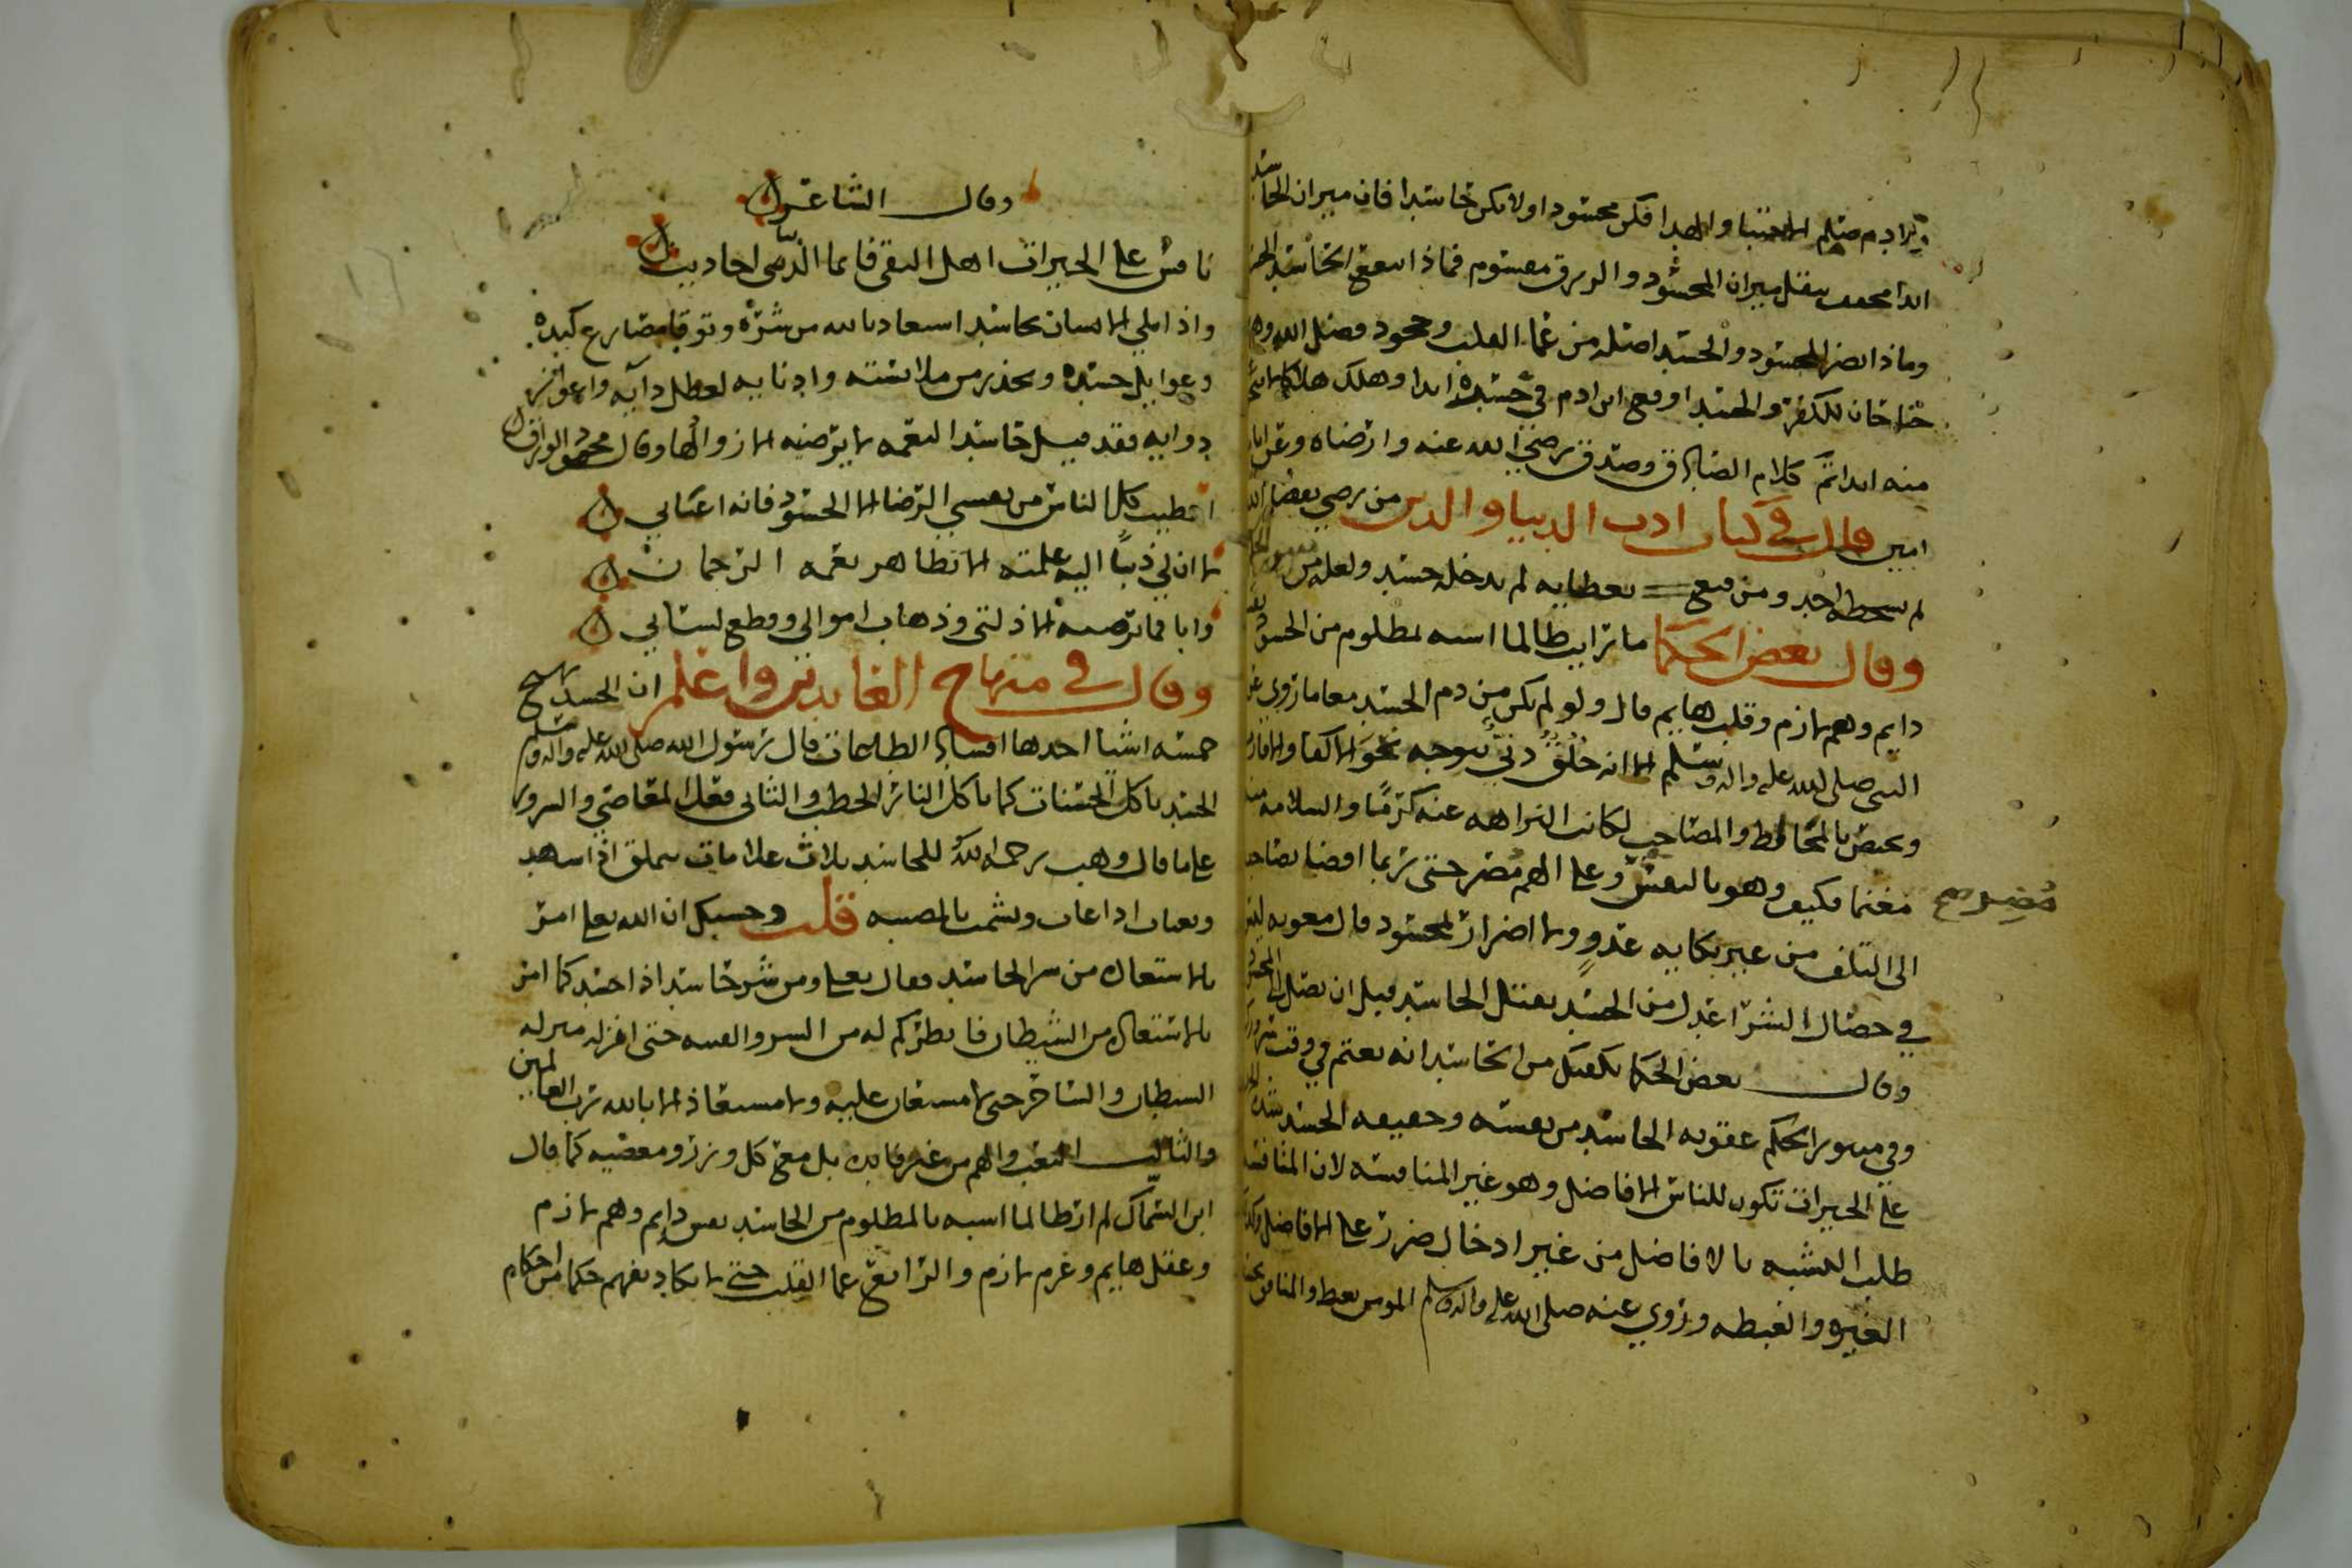 ولادم صلم الاجتبا والهدا فكن محسودا ولا تكن حاسدا فان ميزان الحاسد
ابدا مخفف بثقل ميزان المحسود والرزق مقسوم فماذا ينفع الحاسد الحسد
وماذا يضر المحسود والحسد اصله من عما القلب وجحود فضل الله وهما
جناحان للكفر وبالحسد اوقع ابن ادم في حسرة ابدا وهلك هلاكا لا ينجو
منه ابدا تم كلام الصادق وصدق رضي الله عنه وارضاه وعن ابايه
امين قال في كتاب ادب الدنيا والدين من رضي بقضا الله
لم يسخطه احد ومن قنع بعطايه لم يدخله حسد
وقال بعض الحكما ما رايت ظالما اشبه بمظلوم من الحسود نفس
دايم وهم لازم وقلب هايم قال ولو لم يكن من ذم الحسد مع ما روي عن
النبي صلى الله عليه واله وسلم الا انه خلق دني يتوجه نحو الاكفا والاقارب
ويختص بالمخالط والمصاحب لكانت النزاهه عنه كرما والسلامه منه
مغنما فكيف وهو بالنفس وعلى الهم مضر حتى ربما افضا بصاحبه
مضر صح
الى التلف من غير نكايه عدو ولا اضرار لمحسود قال معويه ليس
في خصال الشر اعدل من الحسد يقتل الحاسد قبل ان يصل الى المحسود
وقال بعض الحكما يكفيك من الحاسد انه يغتم في وقت سرورك
وفي منثور الحكم عقوبه الحاسد من نفسه وحقيقه الحسد شده
على الخيرات تكون للناس الافاضل وهو غير المنافسه لان المنافسه
طلب التشبه بالافاضل من غير ادخال ضرر على الافاضل وكذا
الغيره والغبطه وروي عنه صلى الله عليه واله وسلم المومن يغبط والمنافق يحسد
وقال الشاعر
نافس على الخيرات اهل التقى فانما الدنيا احاديث
واذا بلي الانسان بحاسد استعاذ بالله من شره وتوقا مصارع كيده
وغوايل حسده وتحذر من ملابسته وادنايه لعطل دآيه واعواز
دوايه فقد قيل حاسد النعمه لا يرضيه الا زوالها وقال محمود الوراق
اعطيت كل الناس من نفسي الرضا الا الحسود فانه اعياني
لا ان لي ذنبا اليه علمته الا تظاهر نعمه الرحمان
وابا فما ترضيه الا ذلتي وذهاب اموالي وقطع لساني
وقال في منهاج العابدين واعلم ان الحسد يهيج
خمسه اشيا احدها افساد الطاعات قال رسول الله صلى الله عليه واله وسلم
الحسد ياكل الحسنات كما تاكل النار الحطب والثاني فعل المعاصي والشرور
على ما قال وهب رحمه الله للحاسد ثلاث علامات يتملق اذا شهد
ويغتاب اذا غاب ويشمت بالمصيبه قلت وحسبك ان الله تعالى امر
بالاستعاذه من شر الحاسد فقال تعالى ومن شر حاسد اذا حسد كما امر
بالاستعاذه من الشيطان فانظر كم له من الشر والفتنه حتى انزله منزله
الشيطان والساحر حتى لا مستعان عليه ولا مستعاذ الا بالله رب العالمين
والثالث التعب والهم من غير فايده بل مع كل وزر ومعصيه كما قال
ابن السماك لم ار ظالما اشبه بالمظلوم من الحاسد نفس دايم وهم لازم
وعقل هايم وغرم لازم والرابع عما القلب حتى لا يكاد يفهم حكما من احكام